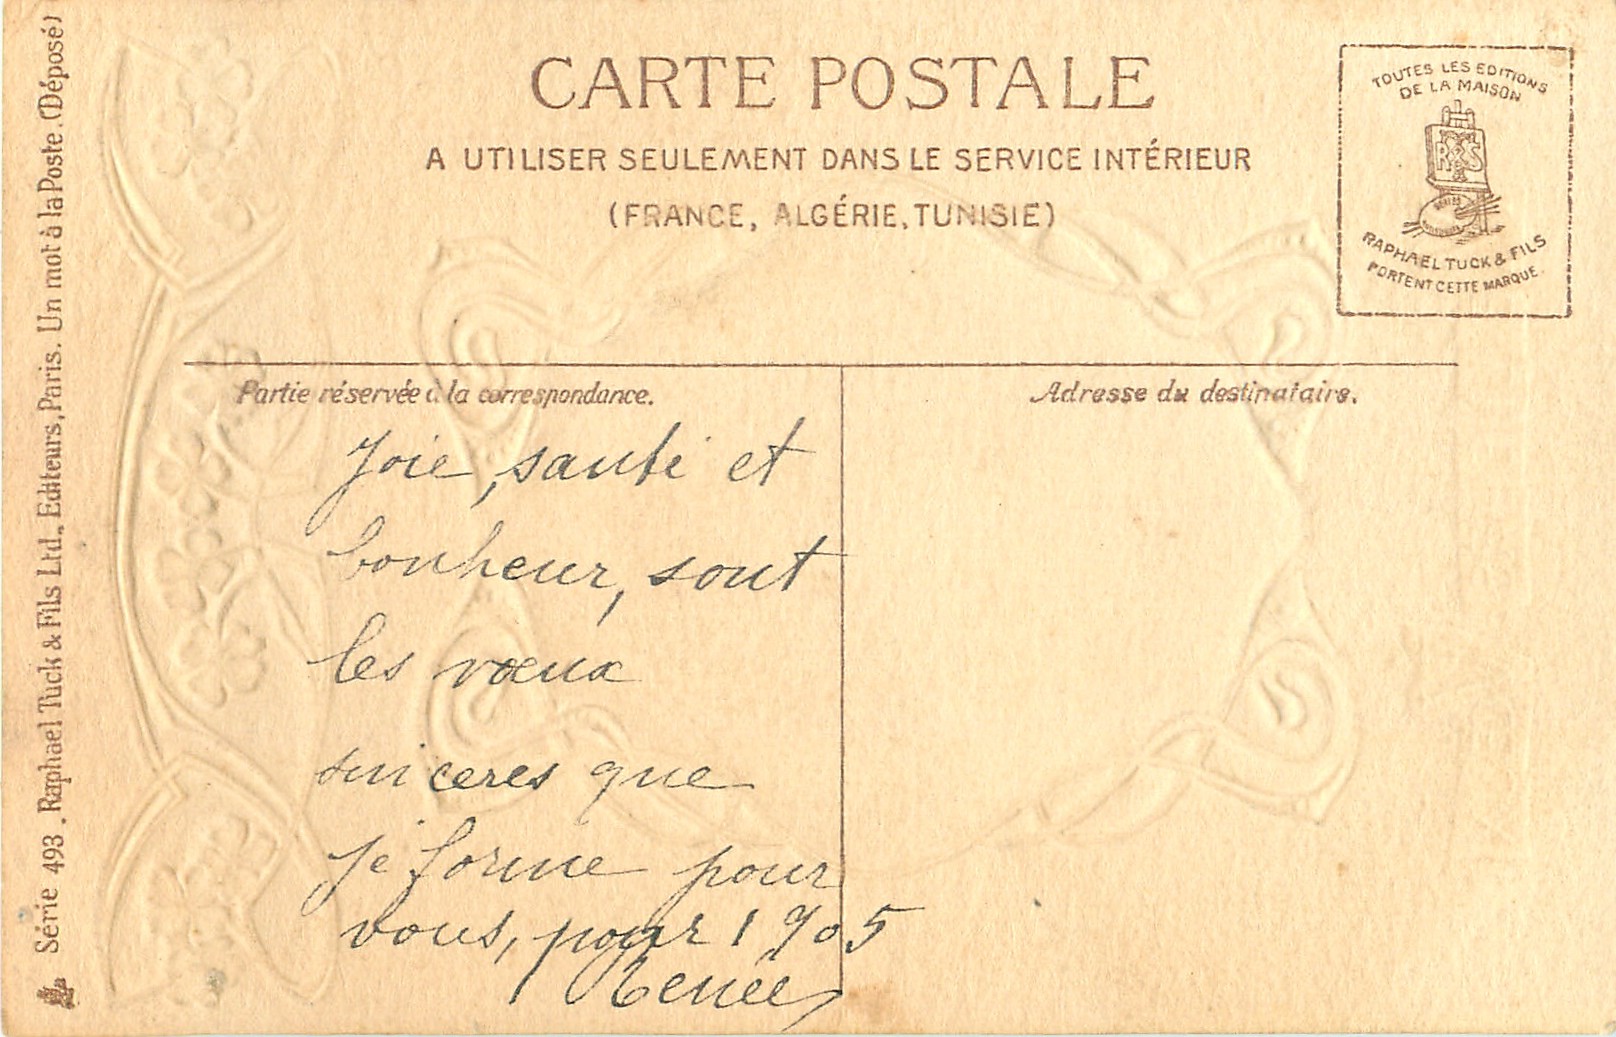 CARTE POSTALE
A UTILISER SEULEMENT DANS LE SERVICE INTÉRIEUR
(FRANCE, ALGÉRIE, TUNISIE)
TOUTES LES EDITIONS
DE LA MAISON
RAPHAEL TUCK & FILS
PORTENT CETTE MARQUE.
Série 493. Raphael Tuck & Fils Ltd., Editeurs, Paris. Un mot à la Poste. (Déposé)
Partie réservée à la correspondance.
Adresse du destinataire.
Joie, santé et
bonheur, sont
les vœux
sinceres que
je forme pour
vous, pour 1905
Renée